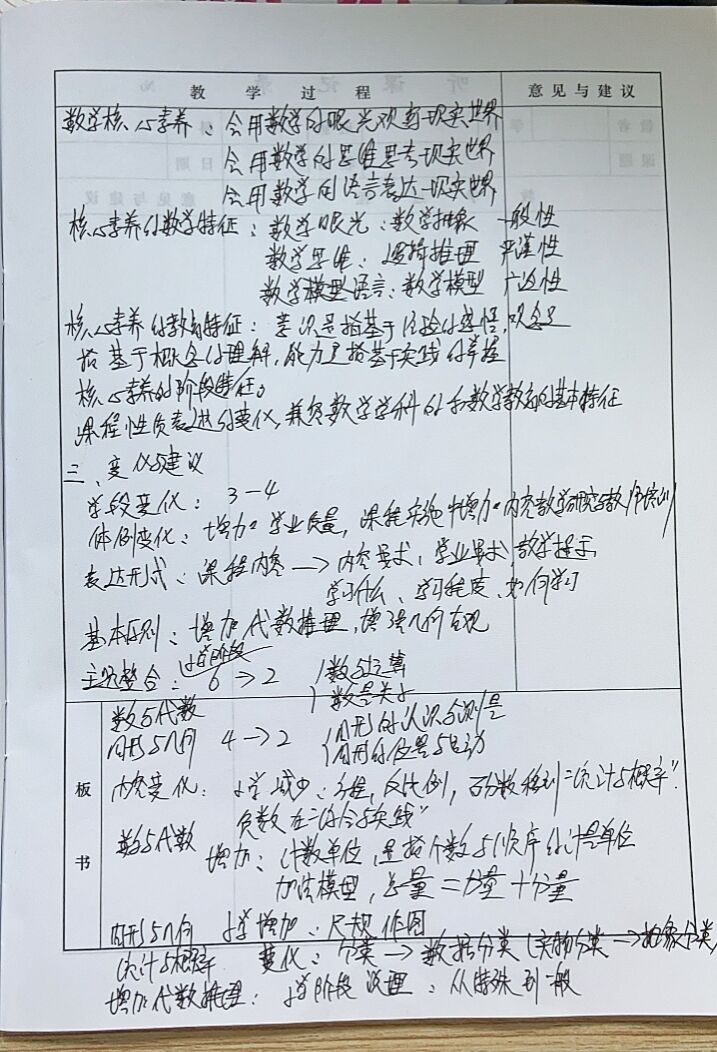 教 学 过 程 意见与建议
数学核心素养：会用数学的眼光观察现实世界
会用数学的思维思考现实世界
会用数学的语言表达现实世界
核心素养的数学特征：数学眼光：数学抽象 一般性
数学思维：逻辑推理 严谨性
数学模型语言：数学模型 广泛性
核心素养的教育特征：意识是指基于经验的感悟，观念
指基于概念的理解，能力是指基于实践的掌握
核心素养的阶段特征。
课程性质表述的变化，兼顾数学学科的和数学教育的基本特征
三、变化与建议
学段变化：3－4
体例变化：增加"学业质量，课程实施中增加"内容教学研究与教师培训
表达形式：课程内容→内容要求，学业要求，教学提示
学习什么、学习程度、如何学习
基本原则：增加代数推理，增强几何直观
小学阶段
主题整合：6→2 数与运算
数量关系
数与代数
图形与几何 4→2 图形的认识与测量
图形的位置与运动
板
内容变化：小学减少：方程，反比例，百分数移到"统计与概率"
负数在"综合与实践"
数与代数
书
增加：计数单位，是指个数与顺序的计量单位
加法模型，总量＝分量＋分量
图形与几何 小学增加：尺规作图
统计与概率 变化：分类→数据分类（实物分类→抽象分类）
增加代数推理：小学阶段说理：从特殊到一般